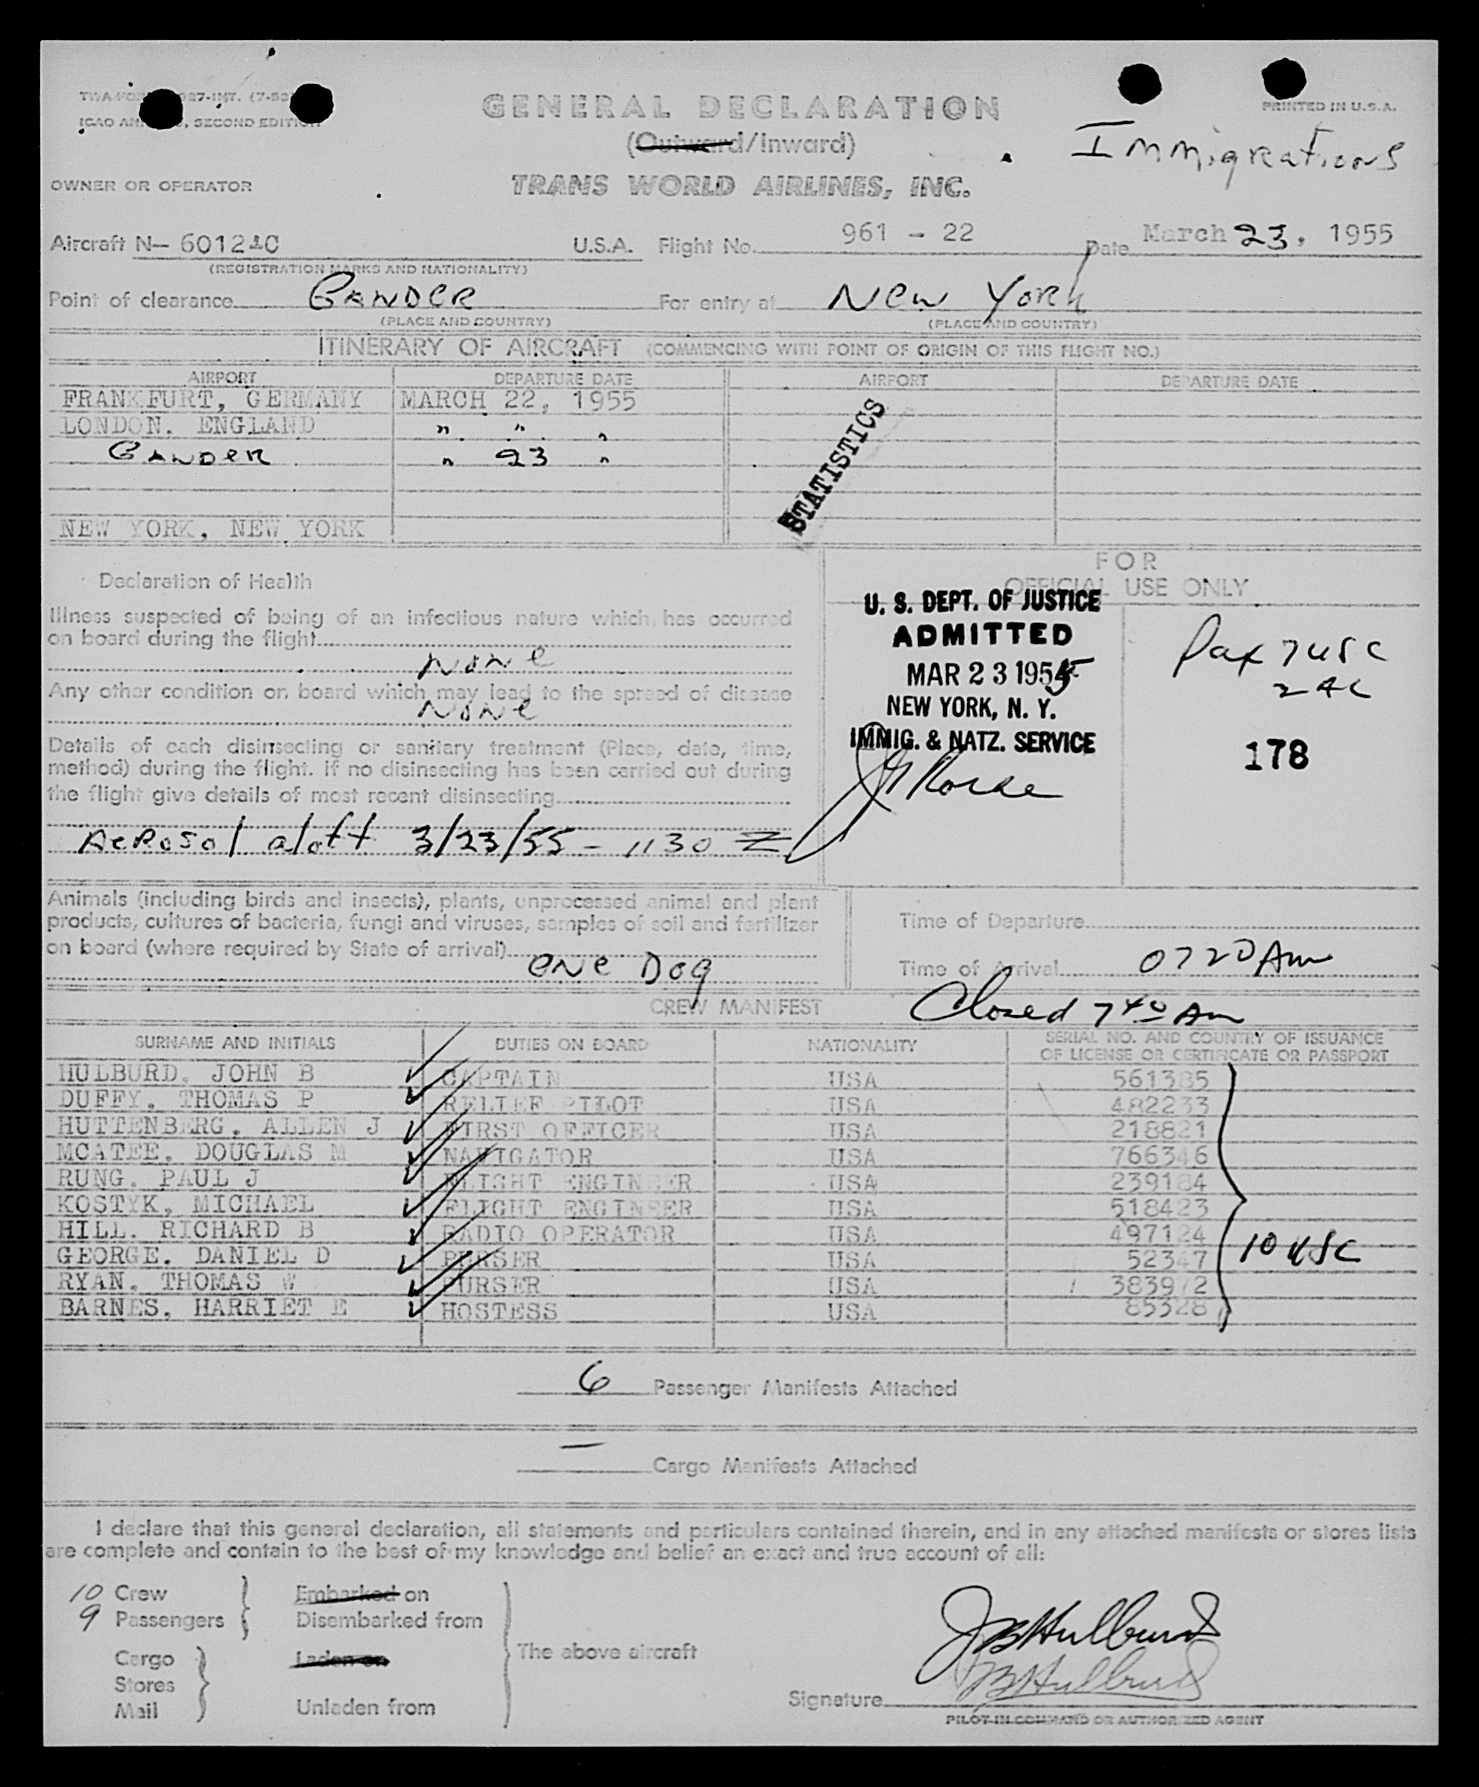 GENERAL DECLARATION
PRINTED IN U.S.A.
ICAO SECOND EDITION
(Outward/Inward)
Immigrations
OWNER OR OPERATOR
TRANS WORLD AIRLINES, INC.
Aircraft N- U.S.A. Flight No. 961 - 22 Date March 23, 1955
(REGISTRATION MARKS AND NATIONALITY)
Point of clearance GANDER For entry at New York
(PLACE AND COUNTRY) (PLACE AND COUNTRY)
ITINERARY OF AIRCRAFT (COMMENCING WITH POINT OF ORIGIN OF THIS FLIGHT NO.)
AIRPORT DEPARTURE DATE AIRPORT DEPARTURE DATE
FRANKFURT, GERMANY MARCH 22, 1955
LONDON. ENGLAND " " "
GANDER " 23 "
STATISTICS
NEW YORK, NEW YORK
FOR
OFFICIAL USE ONLY
Declaration of Health
Illness suspected of being of an infectious nature which has occurred
on board during the flight
None
Any other condition on board which may lead to the spread of disease
None
Details of each disinsecting or sanitary treatment (Place, date, time,
method) during the flight. If no disinsecting has been carried out during
the flight give details of most recent disinsecting
Aerosol aloft 3/23/55 - 1130 Z
U. S. DEPT. OF JUSTICE
ADMITTED
MAR 23 1955
NEW YORK, N. Y.
IMMIG. & NATZ. SERVICE
Pax 7 USC
2 AC
178
Animals (including birds and insects), plants, unprocessed animal and plant
products, cultures of bacteria, fungi and viruses, samples of soil and fertilizer
on board (where required by State of arrival)
One Dog
Time of Departure
Time of Arrival 0720 Am
CREW MANIFEST Closed 740 Am
SURNAME AND INITIALS DUTIES ON BOARD NATIONALITY SERIAL NO. AND COUNTRY OF ISSUANCE
OF LICENSE OR CERTIFICATE OR PASSPORT
HULBURD, JOHN B CAPTAIN USA 561385
DUFFY, THOMAS P RELIEF PILOT USA 482233
HUTTENBERG, ALLEN J FIRST OFFICER USA 218821
MCATEE, DOUGLAS M NAVIGATOR USA 766346
RUNG, PAUL J FLIGHT ENGINEER USA 239184
KOSTYK, MICHAEL FLIGHT ENGINEER USA 518423
HILL, RICHARD B RADIO OPERATOR USA 497124
GEORGE, DANIEL D PURSER USA 52347
10 USC
RYAN, THOMAS W PURSER USA 383972
BARNES, HARRIET E HOSTESS USA 85328
6 Passenger Manifests Attached
— Cargo Manifests Attached
I declare that this general declaration, all statements and particulars contained therein, and in any attached manifests or stores lists
are complete and contain to the best of my knowledge and belief an exact and true account of all:
10 Crew Embarked on
9 Passengers Disembarked from
The above aircraft
Cargo Laden on
Stores
Mail Unladen from
JB Hulburd
JB Hulburd
Signature
PILOT-IN-COMMAND OR AUTHORIZED AGENT